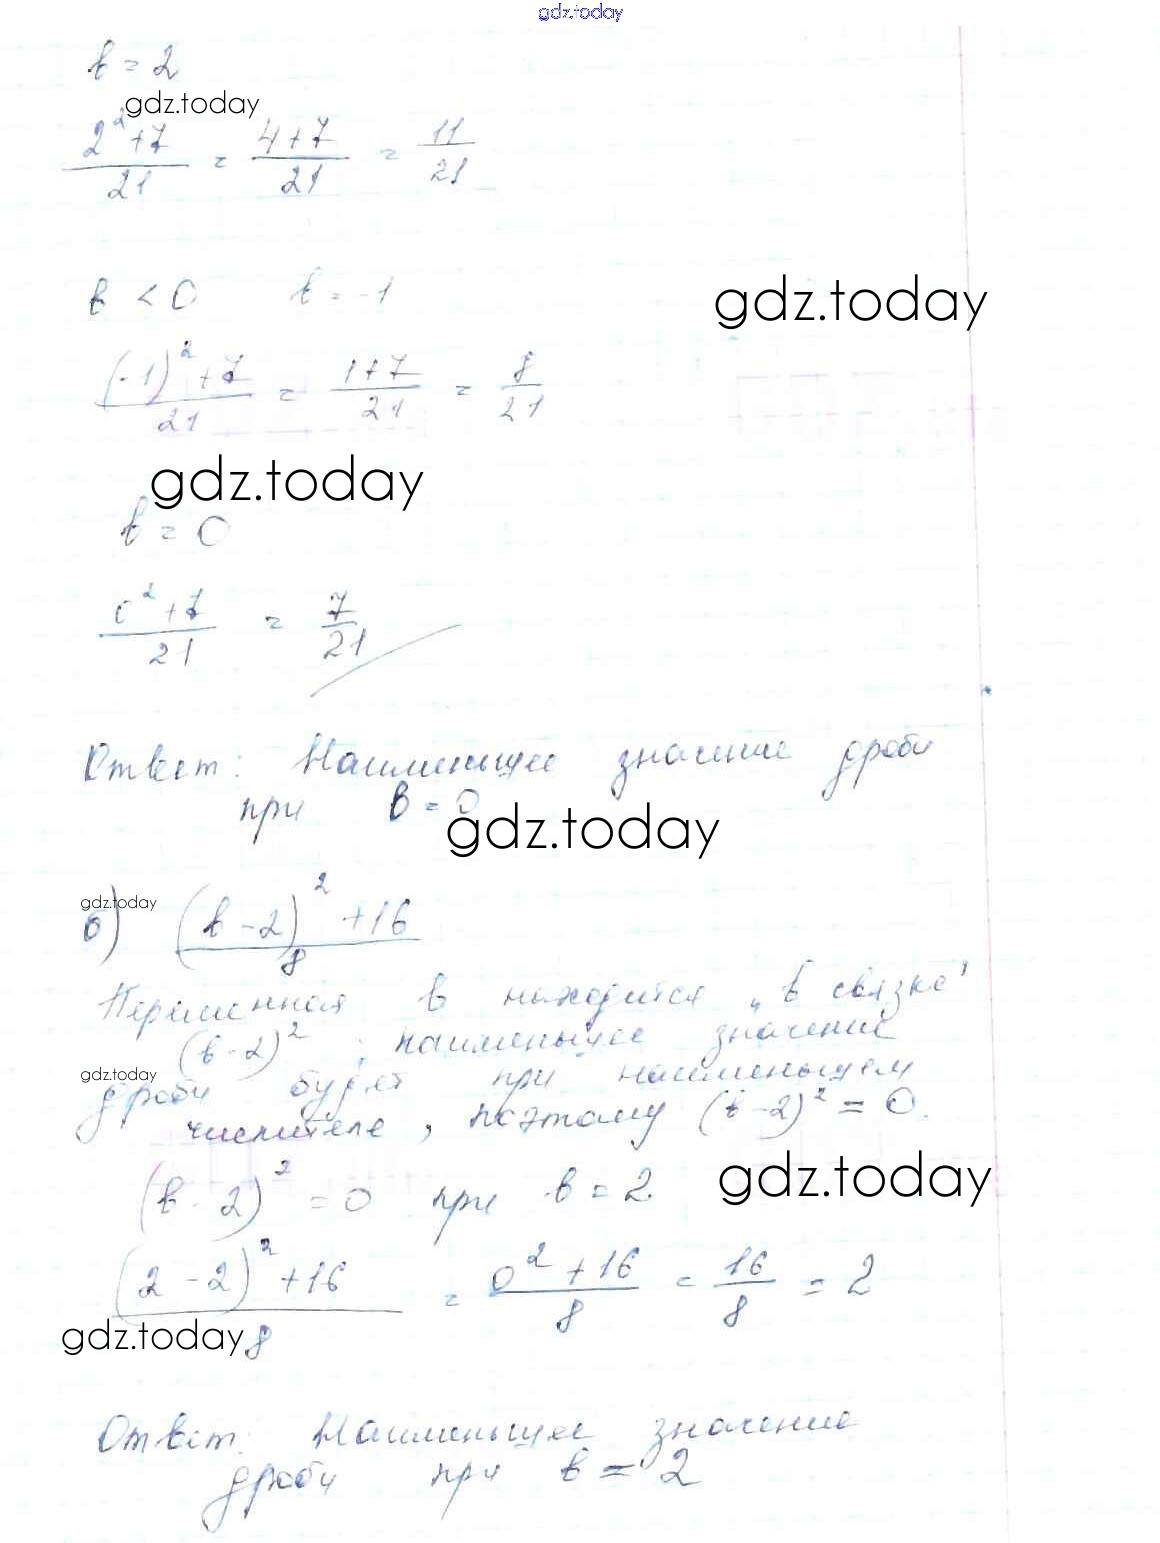 gdz.today
b = 2
gdz.today
(2² + 7)/21 = (4 + 7)/21 = 11/21
b < 0 b = -1
gdz.today
((-1)² + 7)/21 = (1 + 7)/21 = 8/21
gdz.today
b = 0
(0² + 7)/21 = 7/21
Ответ: Наименьшее значение дроби
при b = 0
gdz.today
gdz.today
б) ((b - 2)² + 16)/8
Переменная b находится „в связке"
(b - 2)², наименьшее значение
gdz.today
дроби будет при наименьшем
числителе, поэтому (b - 2)² = 0.
gdz.today
(b - 2)² = 0 при b = 2.
((2 - 2)² + 16)/8 = (0² + 16)/8 = 16/8 = 2
gdz.today
Ответ: Наименьшее значение
дроби при b = 2